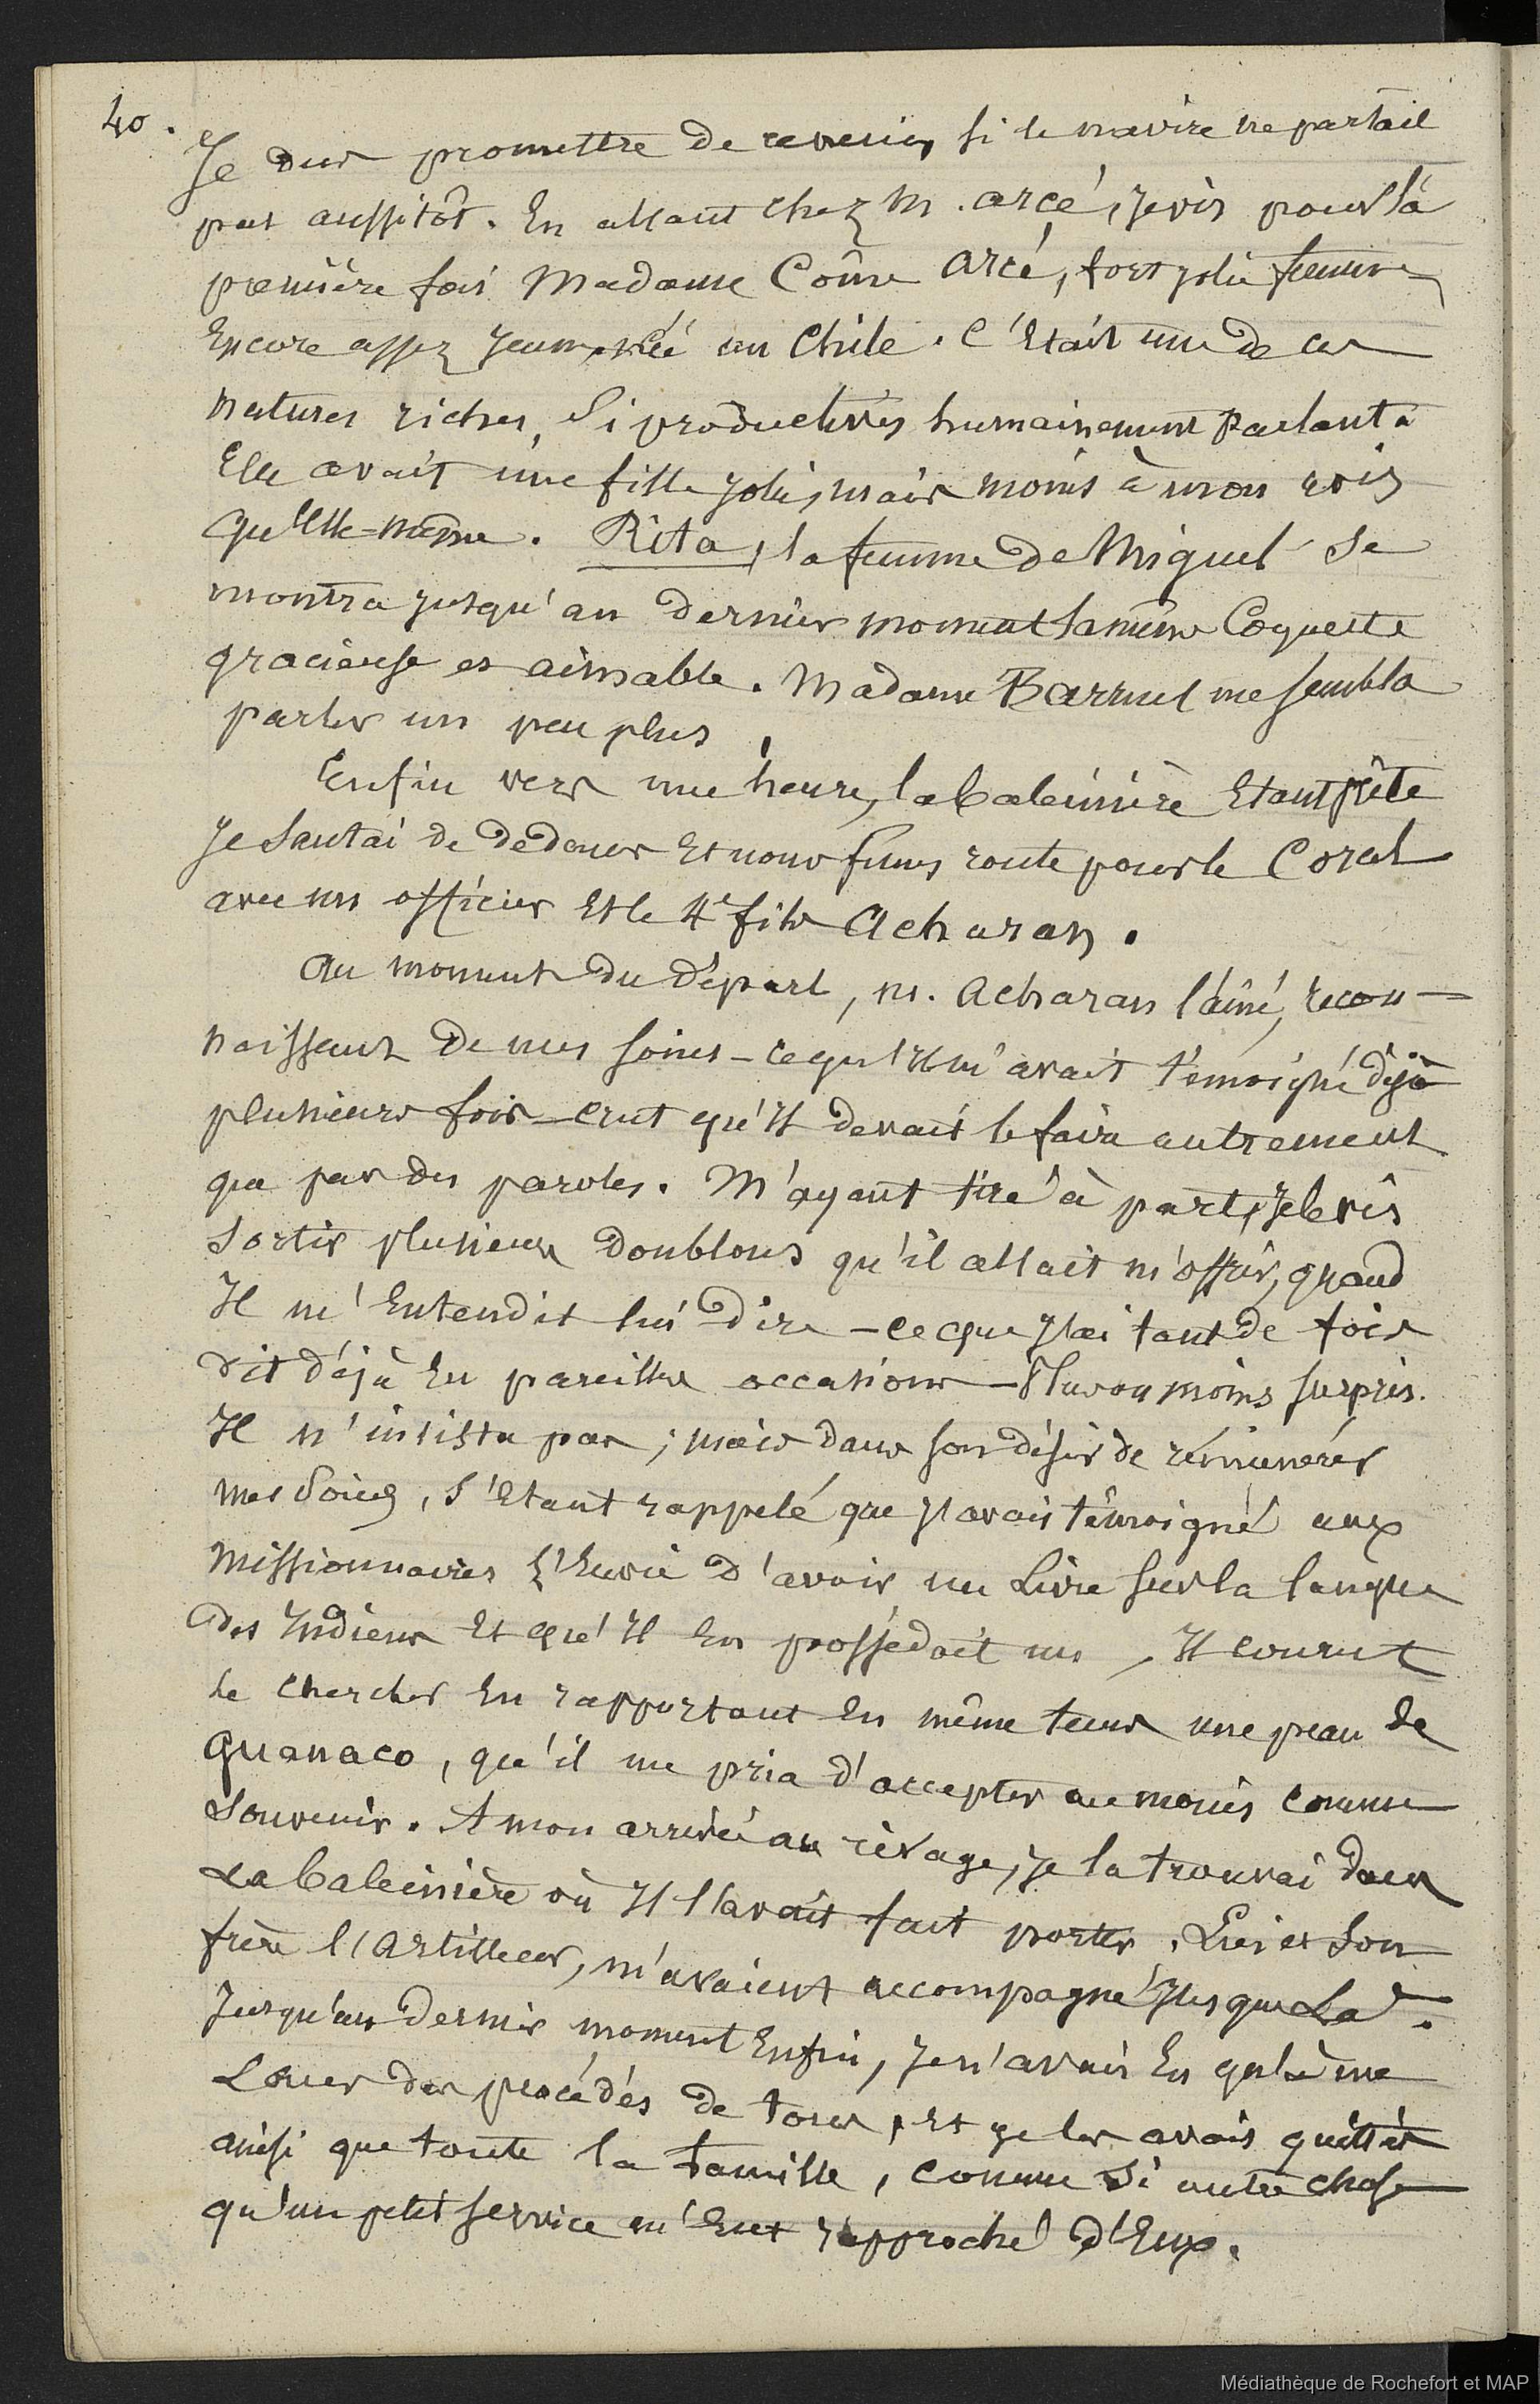 40.
Je dus promettre de revenir, si le navire ne partait
pas aussitôt. En allant chez M. Arcé, je vis pour la
première fois Madame Côme Arcé, fort jolie femme
Encore assez jeune, née au Chile. C'Etait une de ces
natures riches, si productives humainement parlant.
Elle avait une fille jolie, mais moins à mon avis
qu'Elle-même. Rita, la femme de Miguel se
montra jusqu'au dernier moment la même Coquette
gracieuse et aimable. Madame Barruel me sembla
parler un peu plus.
Enfin vers une heure, la baleinière Etant prête
Je sautai de dedans Et nous fimes route pour le Coral
avec un officier Et le 4e fils Acharan.
Au moment du départ, M. Acharan l'aîné, recon-
naissant de mes soins - ce qu'Il m'avait témoigné déjà
plusieurs fois - crut qu'Il devait le faire autrement
que par des paroles. M'ayant tiré à part, Je le vis
sortir plusieurs doublons qu'il allait m'offrir, quand
Il m'Entendit lui dire - ce que J'ai tant de fois
dit déjà En pareilles occasions - Plus ou moins surpris.
Il n'insista pas ; mais dans son désir de rémunérer
mes soins, s'Etant rappelé que J'avais témoigné aux
Missionnaires l'Envie d'avoir un Livre sur la langue
des Indiens Et qu'Il En possédait un, Il courut
le chercher En rapportant En même tems une peau de
Guanaco, qu'il me pria d'accepter au moins comme
souvenir. A mon arrivée au rivage, Je la trouvai dans
La baleinière où Il l'avait fait porter. Lui et Son
frère l'Artilleur, m'avaient accompagné Jusque Là.
Jusqu'au dernier moment Enfin, Je n'avais Eu qu'à me
Louer des procédés de tous, Et je les avais quittés
ainsi que toute la famille, comme si autre chose
qu'un petit service m'Eut rapproché d'Eux.
Médiathèque de Rochefort et MAP